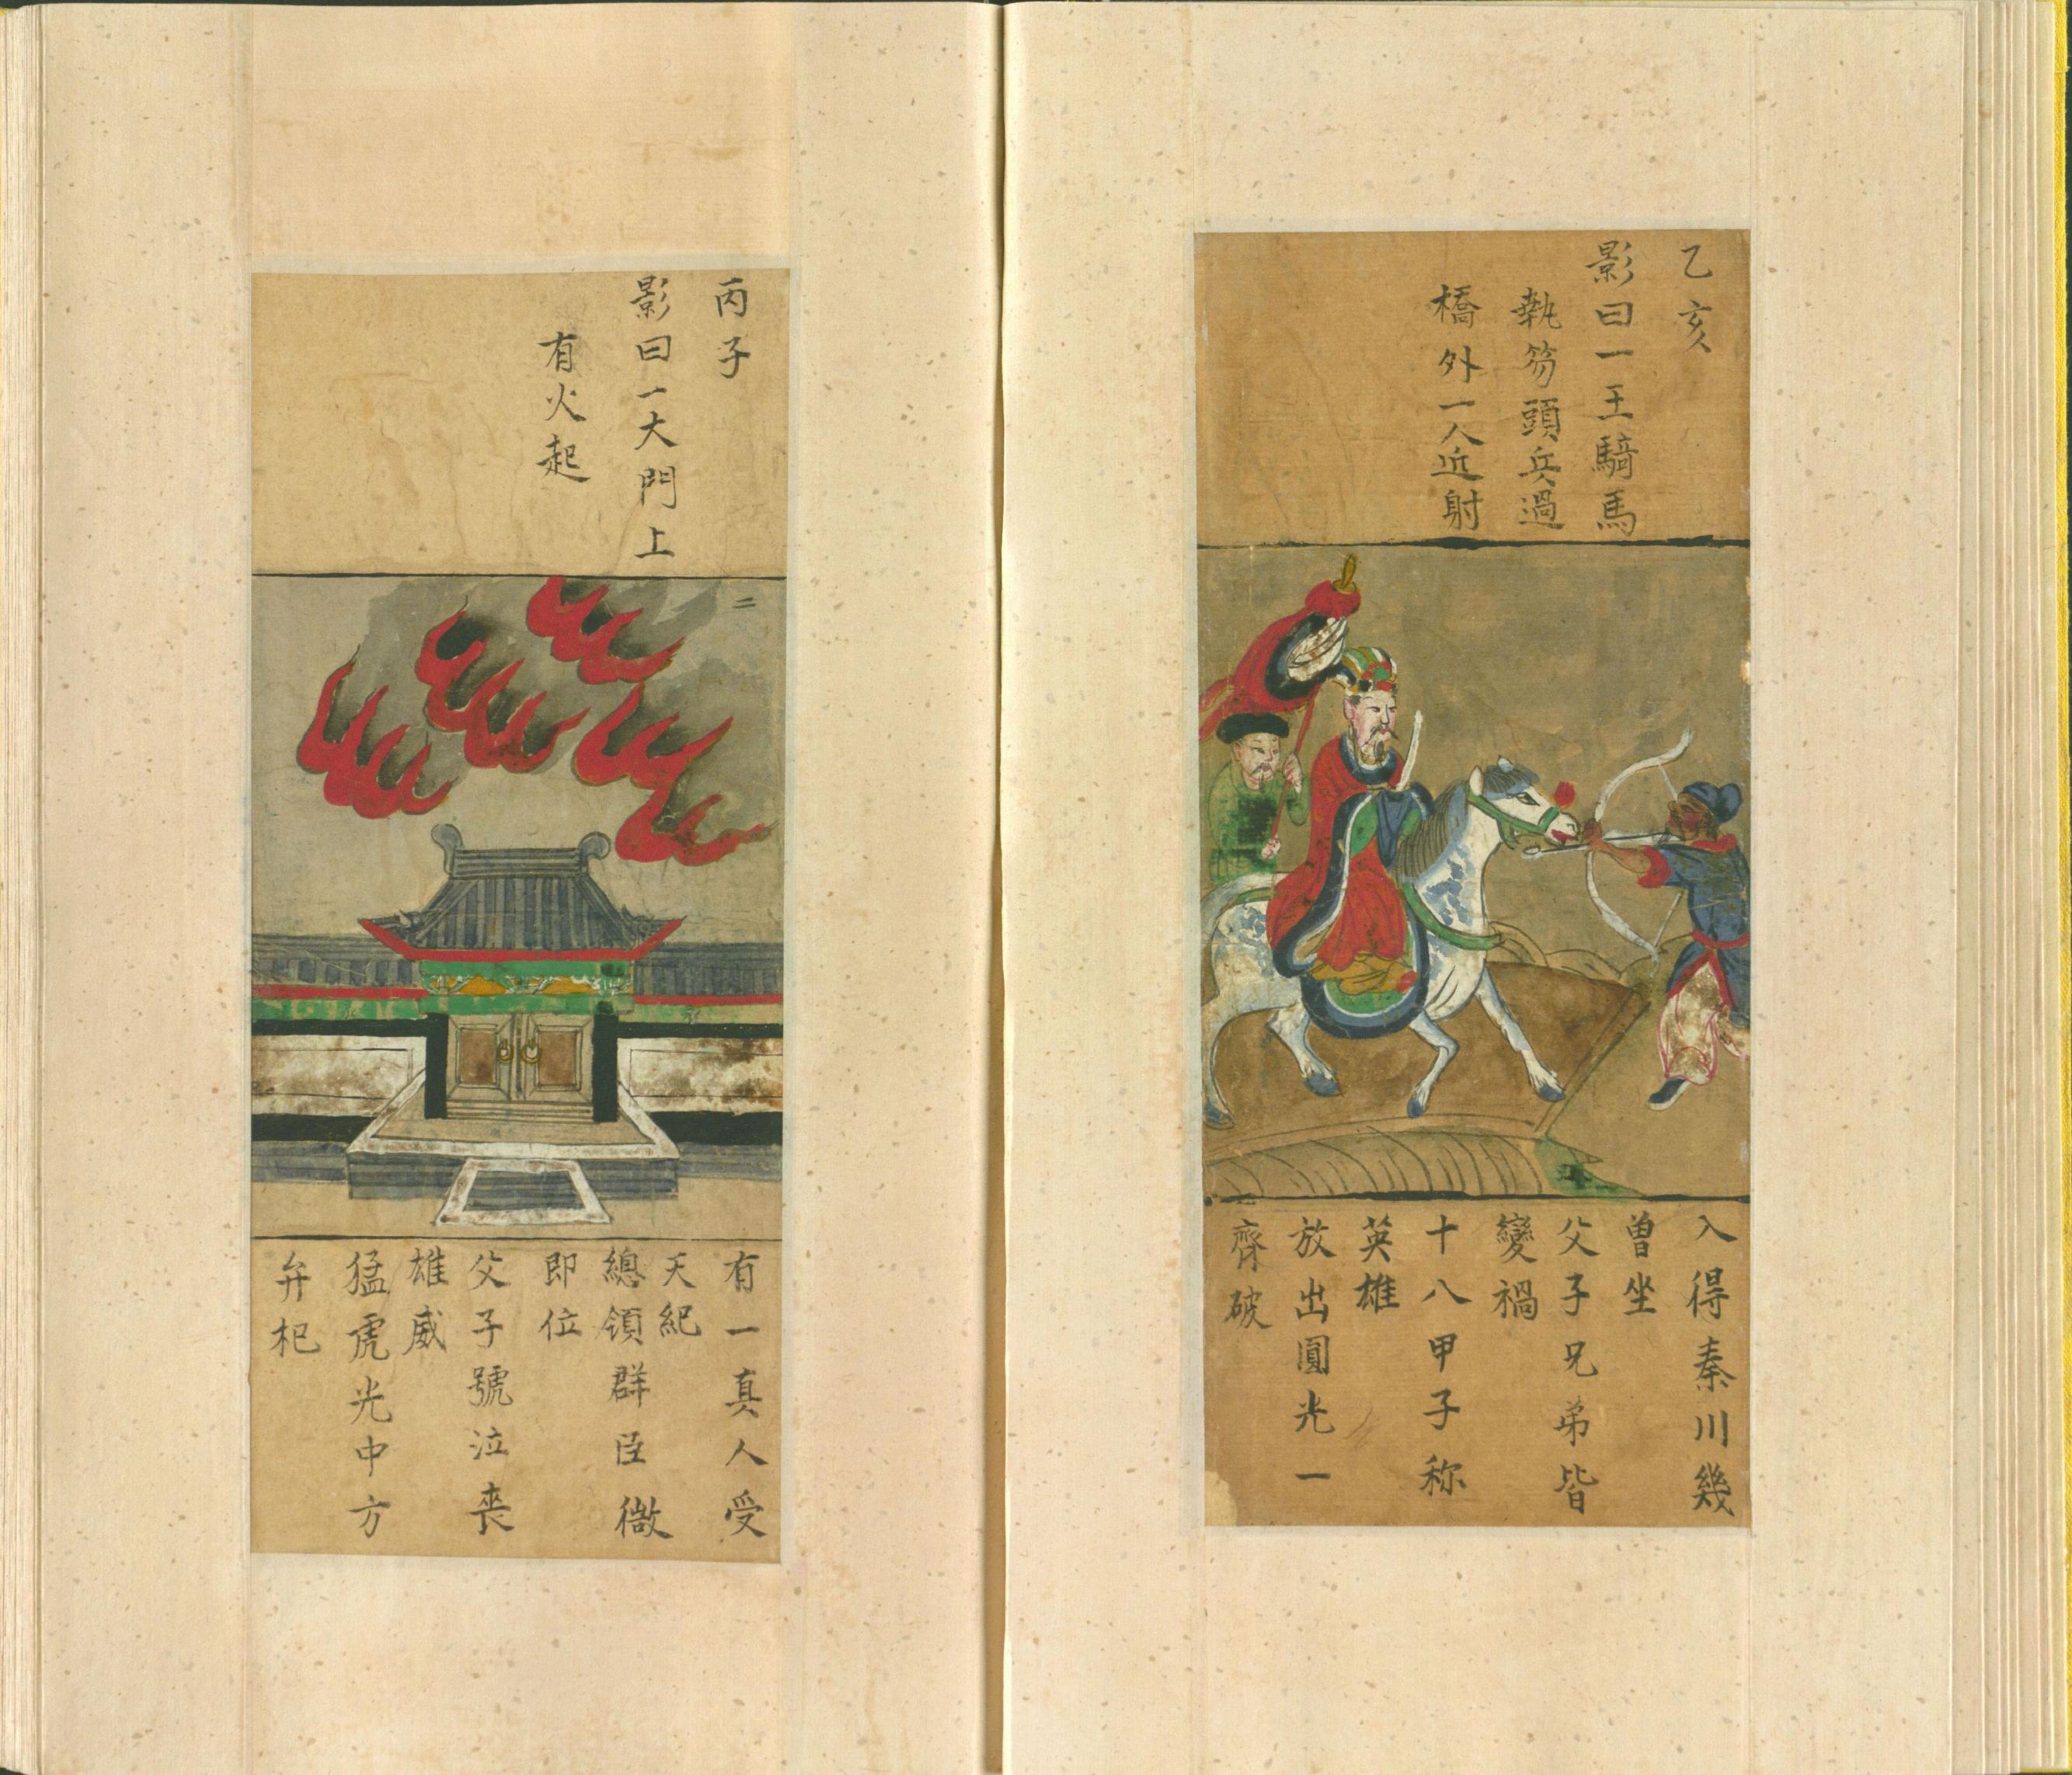 乙亥
影曰一王騎馬
執笏頭兵過
橋外一人近射
入得秦川幾
曽坐
父子兄弟皆
變禍
十八甲子称
英雄
放出圓光一
齊破
丙子
影曰一大門上
有火起
二
有一真人受
天紀
總領群臣
即位
父子號泣喪
雄威
猛虎光中方
弁杞